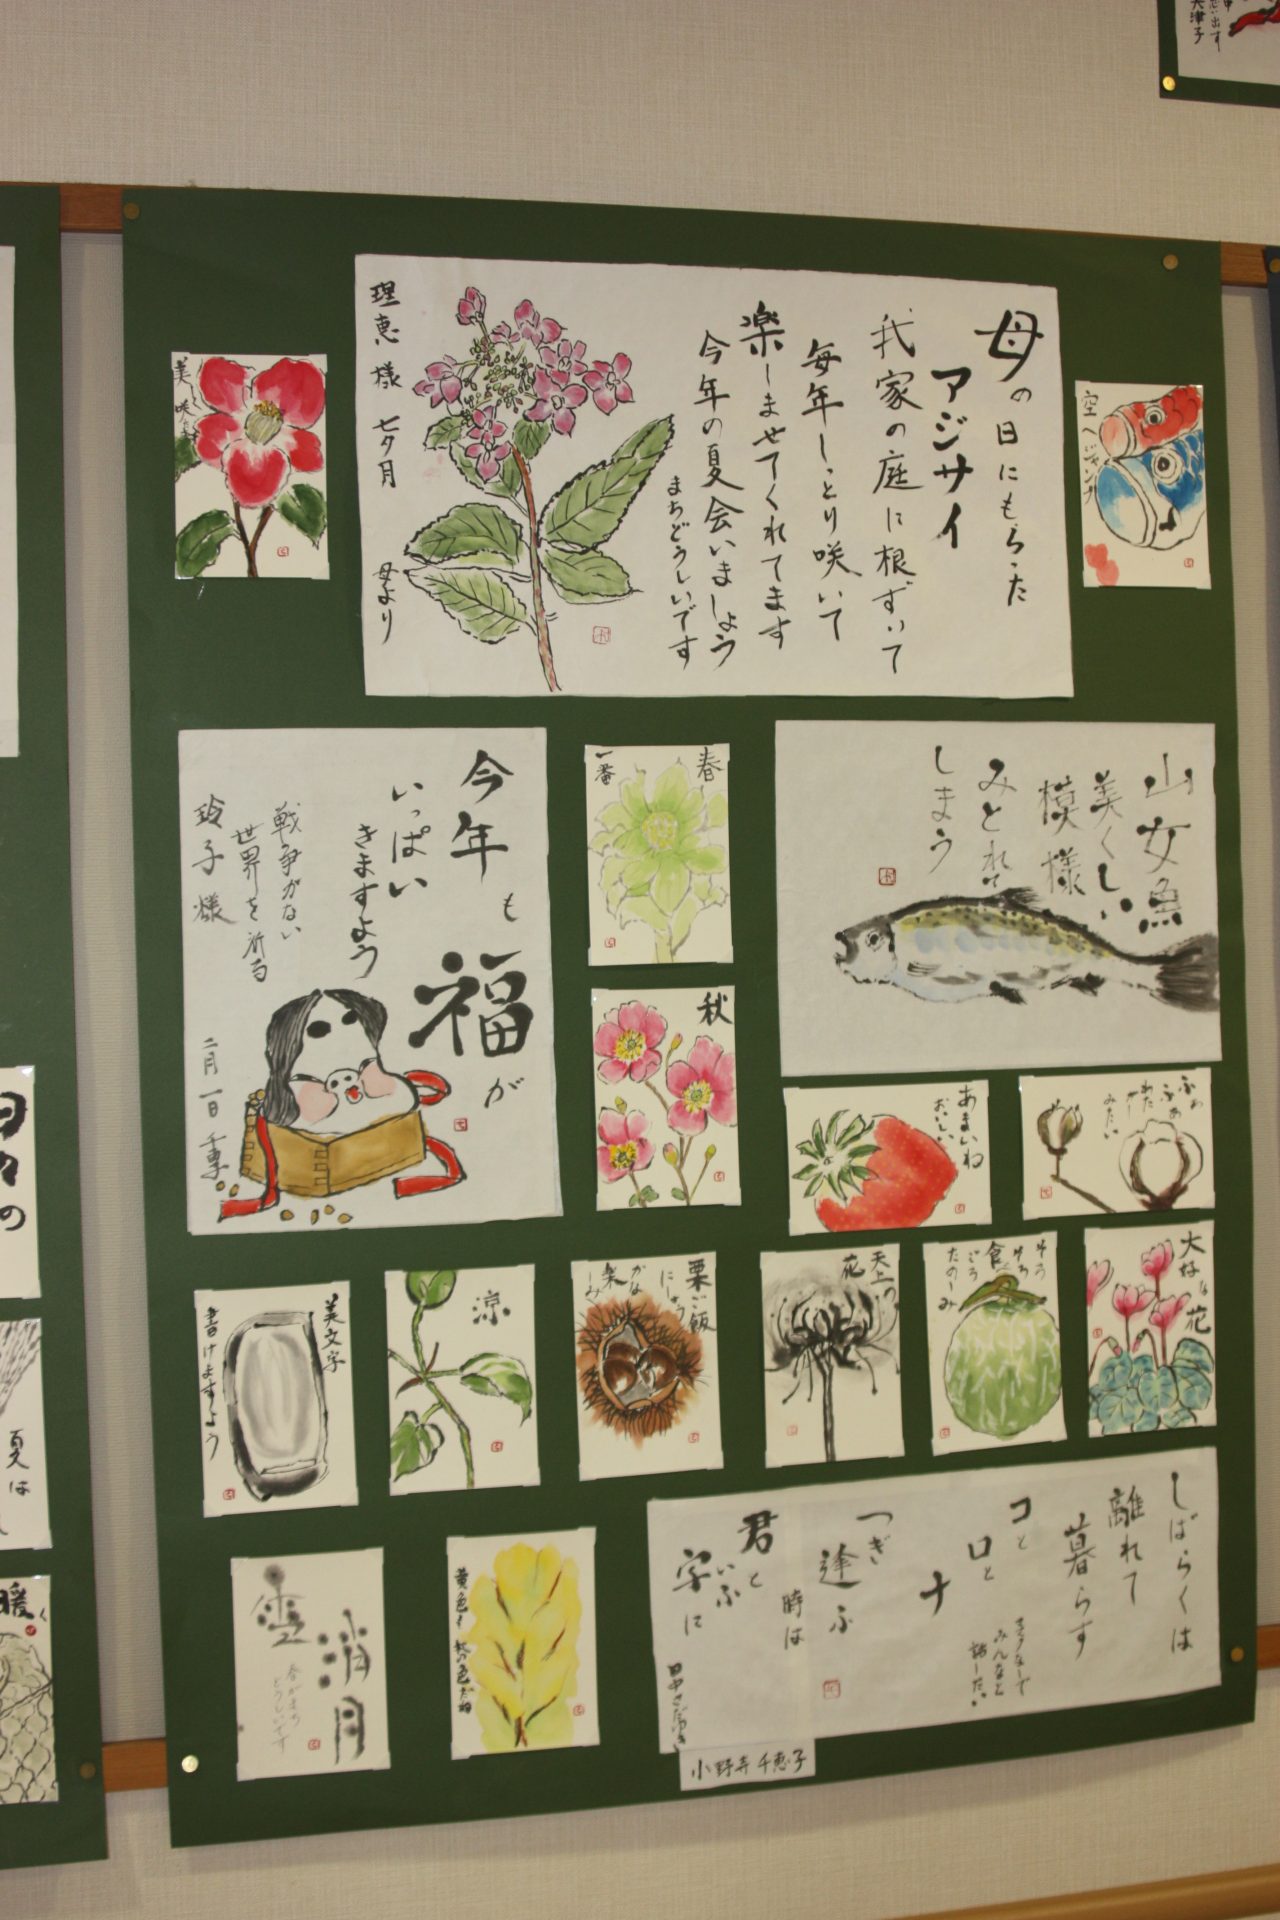 母の日にもらった
アジサイ
我家の庭に根ずいて
毎年しっとり咲いて
楽しませてくれてます
今年の夏会いましょう
まちどうしいです
理恵様 七夕月
母より
美しく
空へジャンプ
今年も福が
いっぱい
きますよう
戦争がない
世界を祈る
玲子様
二月一日
春
一番
山女魚
美くしい
模様
みとれて
しまう
秋
あまいね
おいしい
ふわ
ふわ
わた
みたい
美文字
書けますよう
涼
栗ご飯
天上の
花
そろ
そろ
食べ
ごろ
たのしみ
大好きな花
清月
春がまち
どうしいです
黄色
しばらくは
離れて
暮らす
コと
ロと
ナ
つぎ
逢ふ
時は
君と
いふ
字に
みんなと
話したい
小野寺千恵子
日々の
夏は
暖く